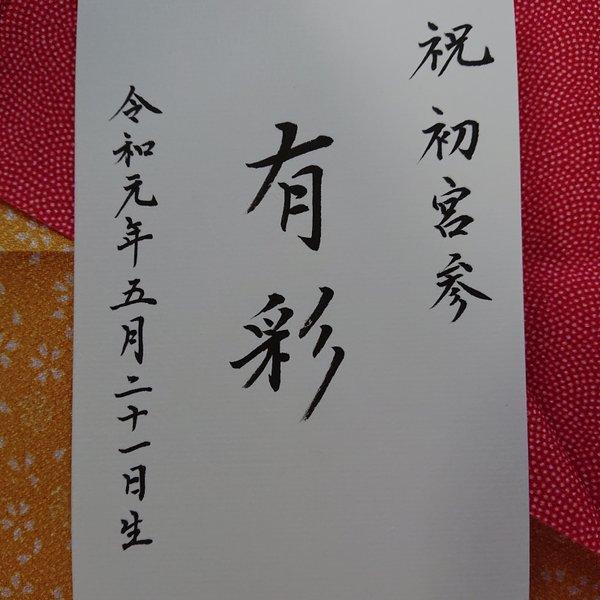 祝初宮参
有彩
令和元年五月二十一日生